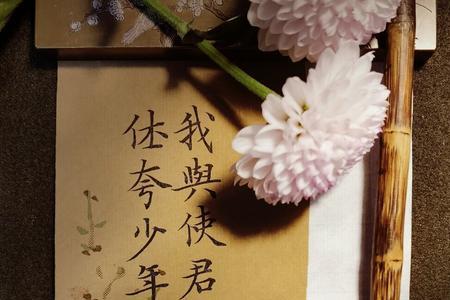 我與使君
休夸少年